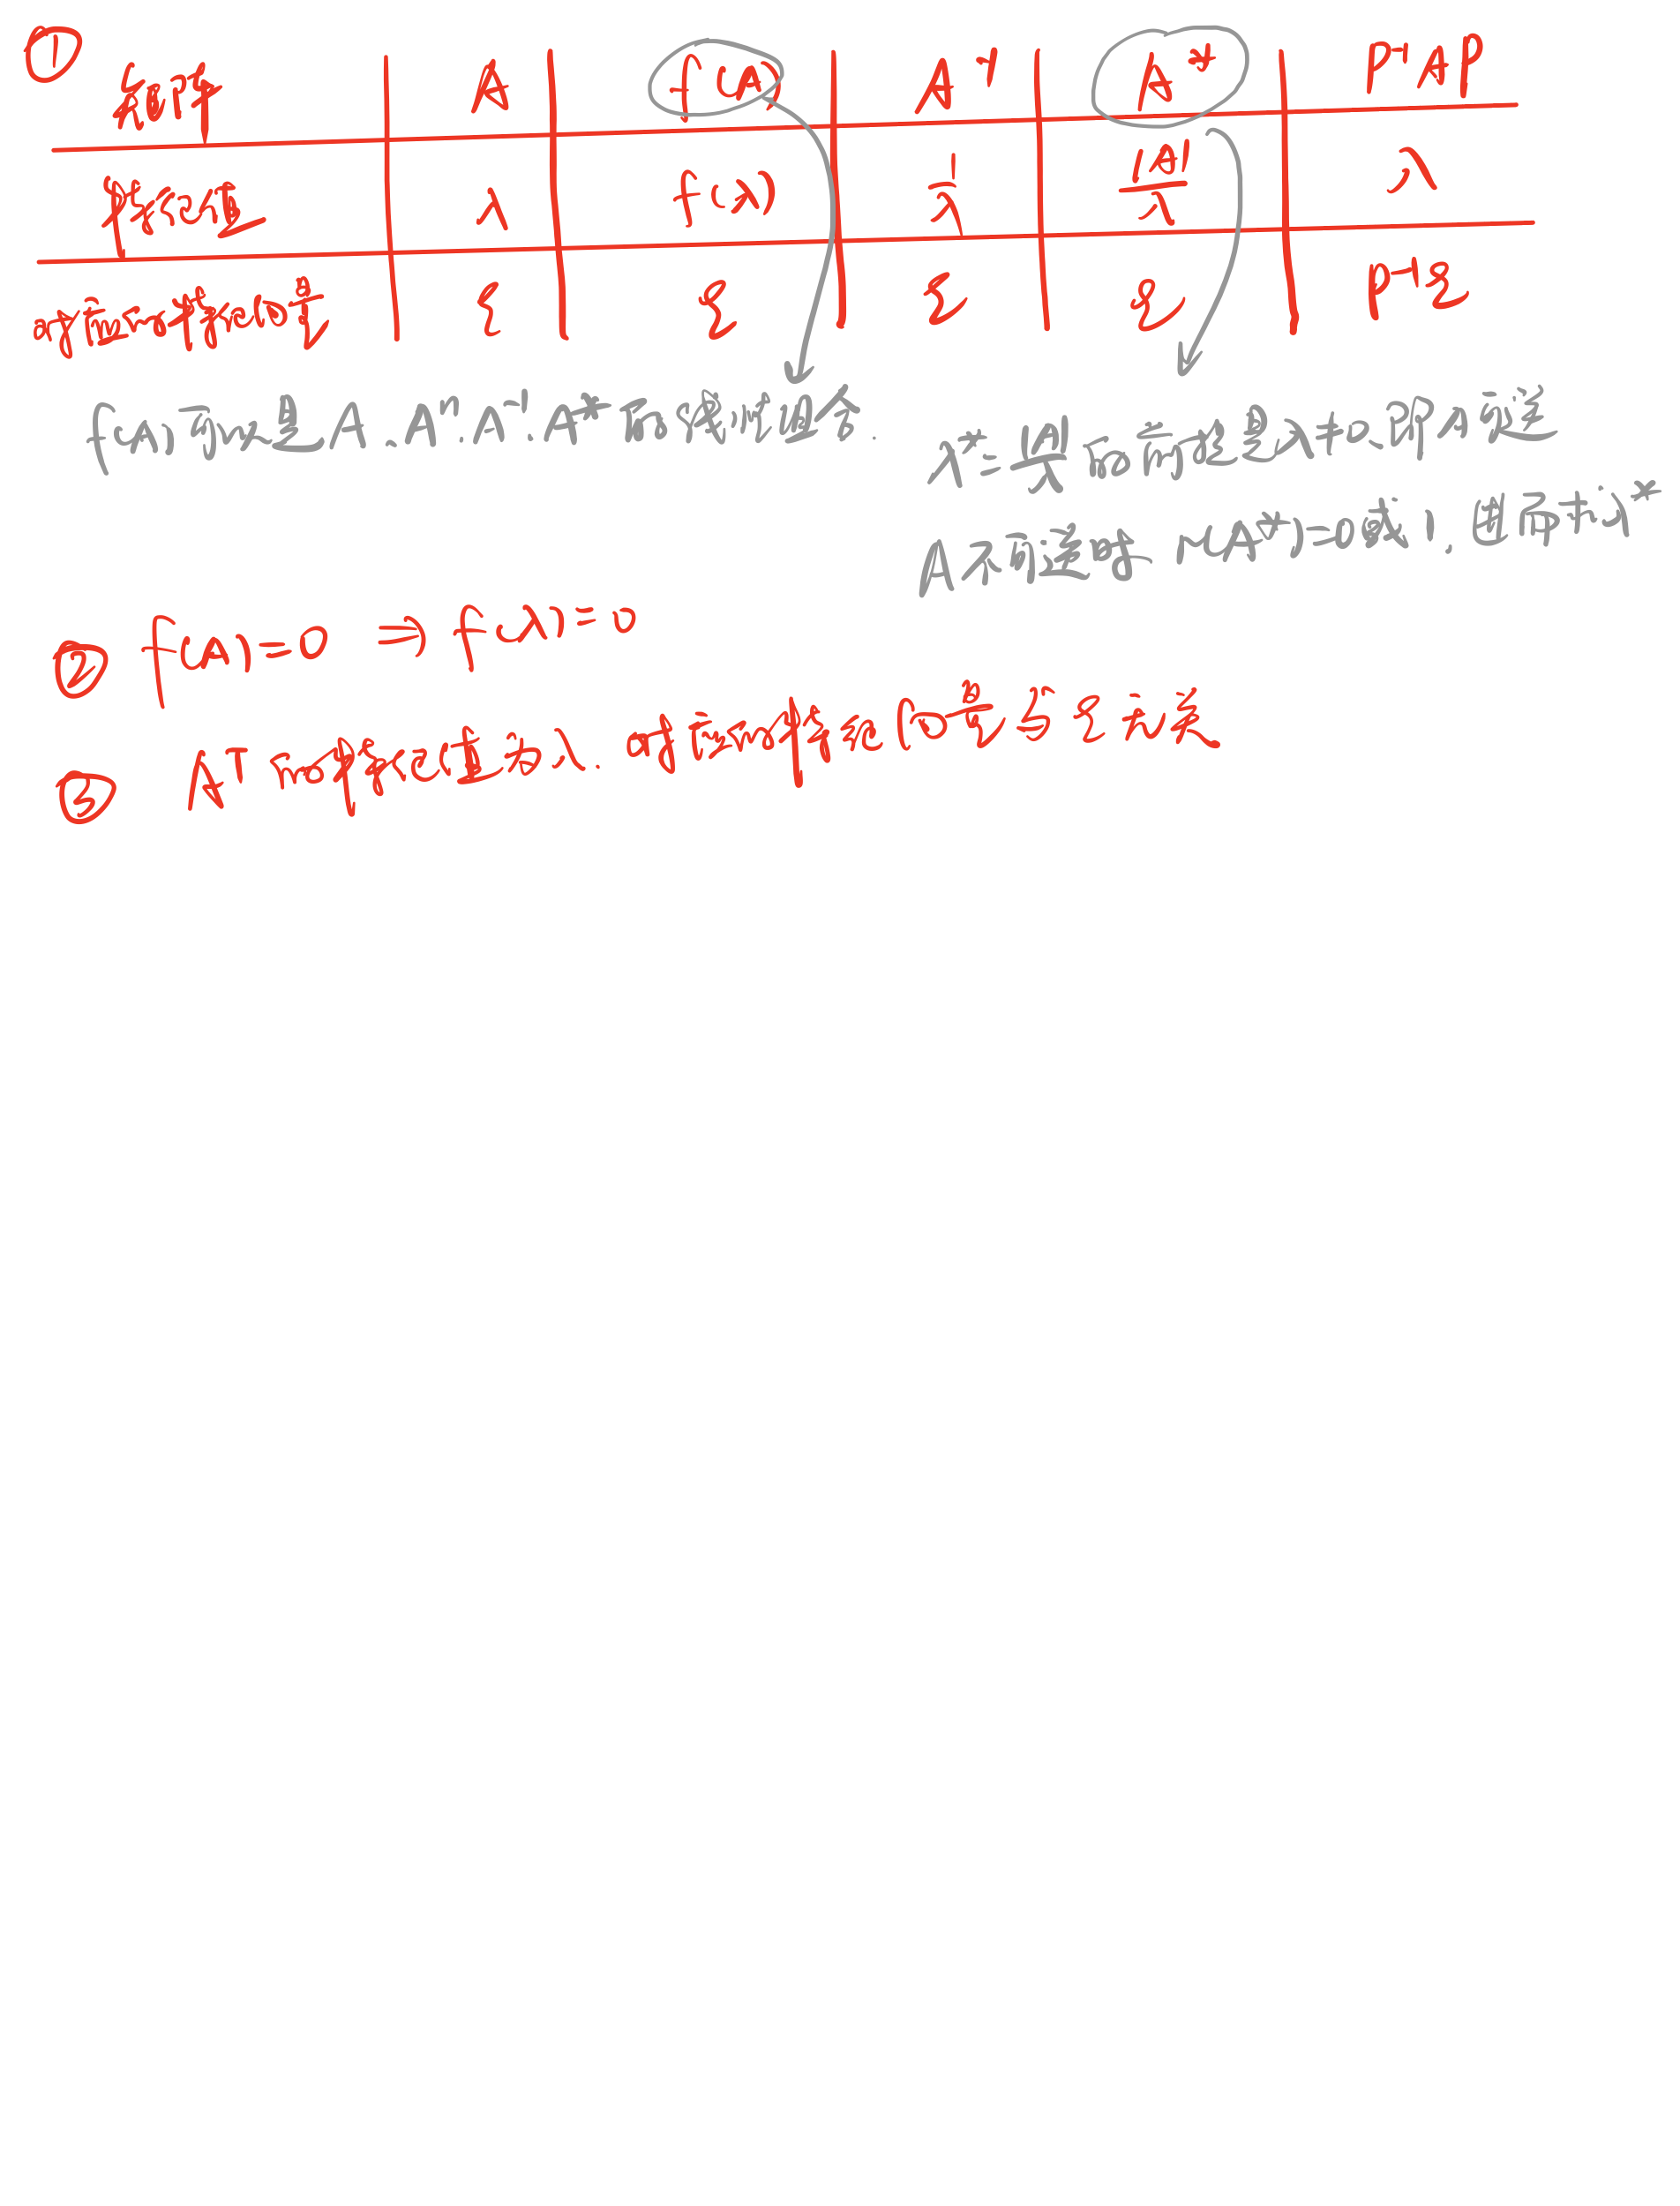 ① 矩阵 A f(A) A⁻¹ A* P⁻¹AP
特征值 λ f(λ) 1/λ |A|/λ λ
对应的特征向量 ξ ξ ξ ξ P⁻¹ξ
f(A)可以是A、Aⁿ、A⁻¹、A*
λ*=|A|/λ的前提是λ≠0,即A可逆
A不可逆时 r(A*)=0或1,
② f(A)=0 ⇒ f(λ)=0
③ Aᵀ的特征值为λ,对应的特征向量与ξ无关